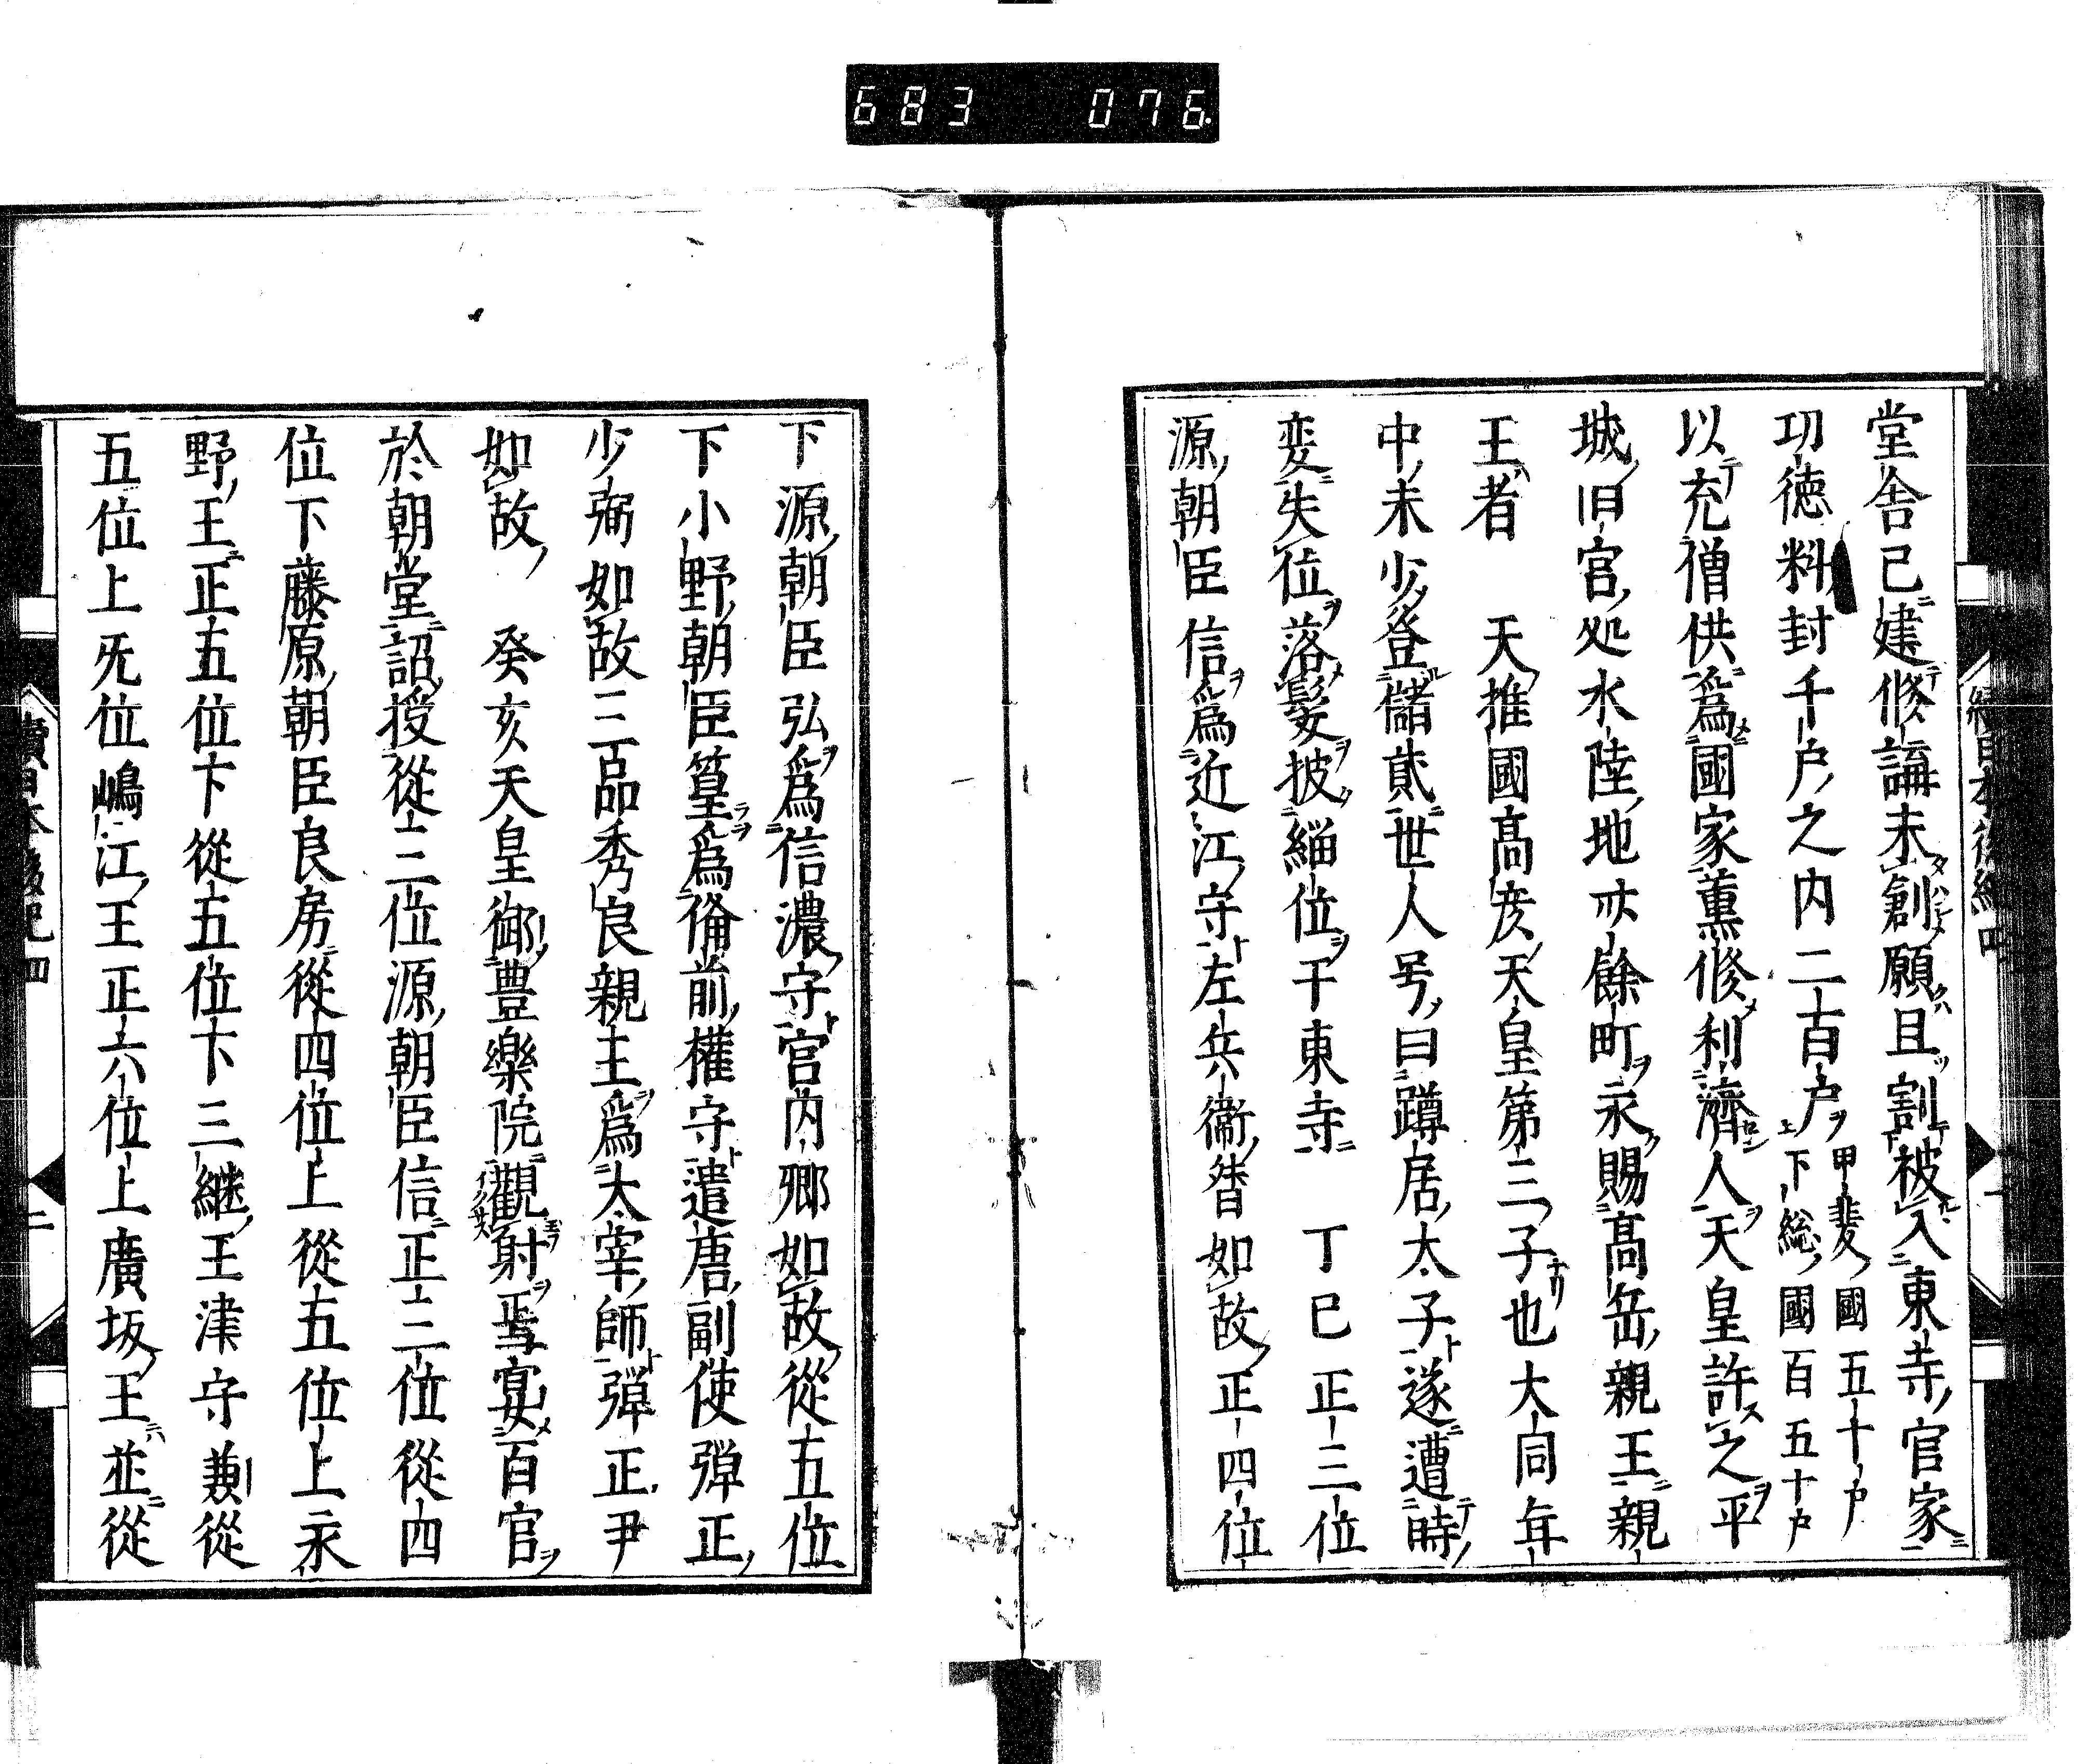 683 076
堂舎已建修講未創願且割被入東寺官家
功徳料封千戸之内二百戸甲斐國五十戸
上下総國百五十戸
以充僧供爲國家薫修利濟人天皇許之平
城旧宮処水陸地卌餘町永賜高岳親王親
王者 天推國高彦天皇第三子也大同年
中未少登儲貳世人号曰蹲居太子遂遭時
変失位落髮披緇位于東寺 丁巳正三位
源朝臣信爲近江守左兵衞督如故正四位
下源朝臣弘爲信濃守宮内卿如故從五位
下小野朝臣篁爲俻前權守遣唐副使彈正
少弼如故三品秀良親王爲太宰師彈正尹
如故 癸亥天皇御豊樂院觀射 宴百官
於朝堂詔授從三位源朝臣信正三位從四
位下藤原朝臣良房從四位上從五位上永
野王正五位下從五位下三継王津守兼從
五位上旡位嶋江王正六位上廣坂王並從
續日本後紀四
二